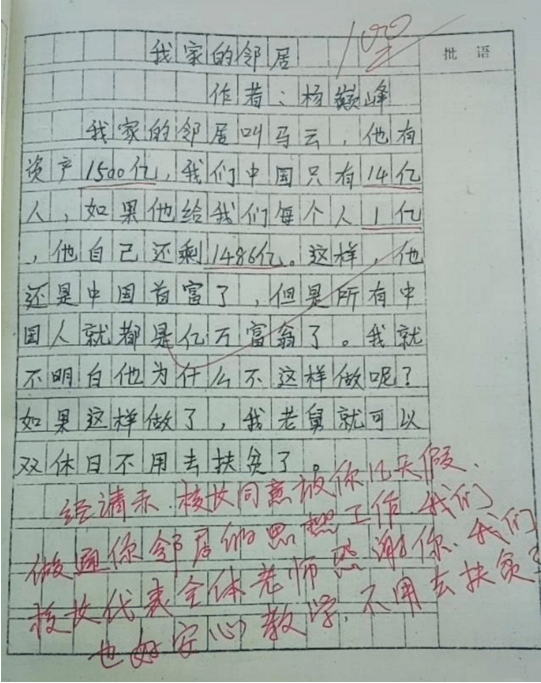 我家的邻居
100
批语
作者：杨巅峰
我家的邻居叫马云，他有
资产1500亿，我们中国只有14亿
人，如果他给我们每个人1亿
，他自己还剩1486亿。这样，他
还是中国首富了，但是所有中
国人就都是亿万富翁了。我就
不明白他为什么不这样做呢？
如果这样做了，我老舅就可以
双休日不用去扶贫了。
经请示、校女同意放你几天假、
做通你邻居的思想工作我们
校女代表全体老师感谢你、我们
也好安心教学，不用去扶贫了